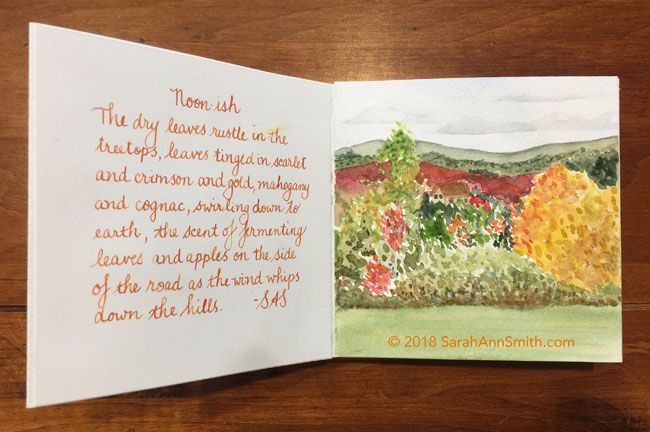 Noon-ish
The dry leaves rustle in the
treetops, leaves tinged in scarlet
and crimson and gold, mahogany
and cognac, swirling down to
earth, the scent of fermenting
leaves and apples on the side
of the road as the wind whips
down the hills. -SAS
© 2018 SarahAnnSmith.com